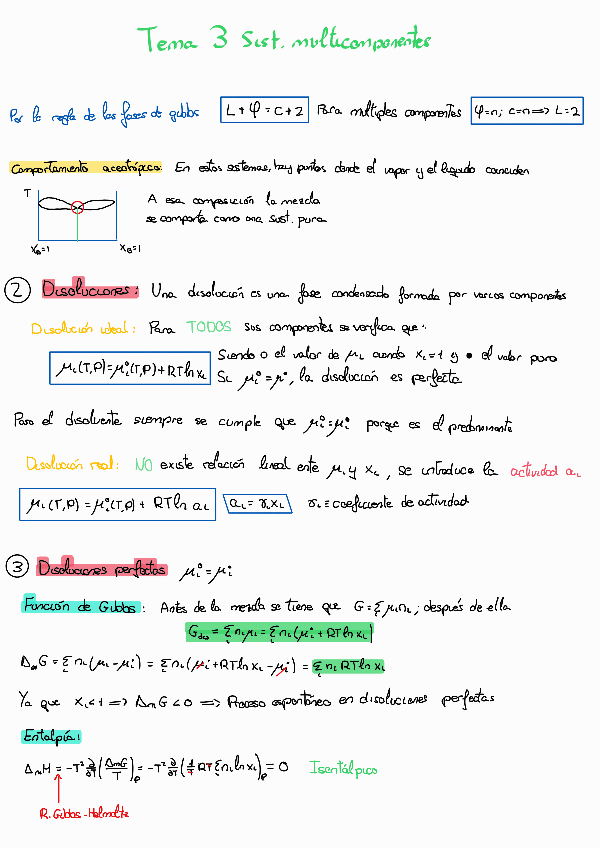 Tema 3 Sist. multicomponentes
Por la regla de las fases de gibbs L + φ = c + 2 Para multiples componentes φ=n; c=n ⟹ L=2
Comportamiento aceotrópico: En estos sistemas, hay puntos donde el vapor y el líquido coinciden
T
A esa composición la mezcla
se comporta como una sust. pura
XB=1
② Disoluciones: Una disolución es una fase condensada formada por varios componentes
Disolución ideal: Para TODOS sus componentes se verifica que:
μi(T,P)=μi°(T,P)+RT ln xi Siendo o el valor de μi cuando xi=1 y • el valor puro
Si μi°=μ•, la disolución es perfecta
Para el disolvente siempre se cumple que μi°=μi• porque es el predominante
Disolución real: NO existe relación lineal ente μi y xi, se introduce la actividad ai
μi(T,P) = μi°(T,P) + RT ln ai ai = γi xi γi ≡ coeficiente de actividad
③ Disoluciones perfectas μi° = μi•
Función de Gibbs: Antes de la mezcla se tiene que G = Σ μi ni, después de ella
Gdis = Σ ni μi = Σ ni (μi• + RT ln xi)
ΔmG = Σ ni (μi - μi•) = Σ ni (μi• + RT ln xi - μi•) = Σ ni RT ln xi
Ya que xi<1 ⟹ ΔmG<0 ⟹ Proceso espontáneo en disoluciones perfectas
Entalpía:
ΔmH = -T² ∂/∂T (ΔmG/T)P = -T² ∂/∂T (1/T RT Σ ni ln xi)P = 0 Isentálpico
R. Gibbs-Helmoltz